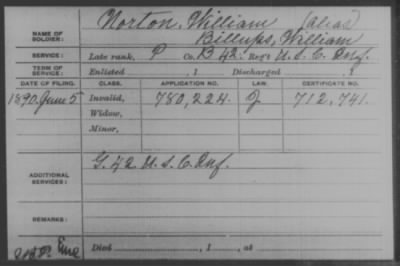 Norton, William (alias)
NAME OF SOLDIER: Billups, William
SERVICE: Late rank, P Co. D 42 Reg't U.S.C. Inf.
TERM OF SERVICE: Enlisted , 1 Discharged , 1
DATE OF FILING. CLASS. APPLICATION NO. LAW. CERTIFICATE NO.
1890 June 5 Invalid, 780,224. J 712,741.
Widow,
Minor,
ADDITIONAL SERVICES: G. 42 U.S.C. Inf.
REMARKS:
Died , 1 , at